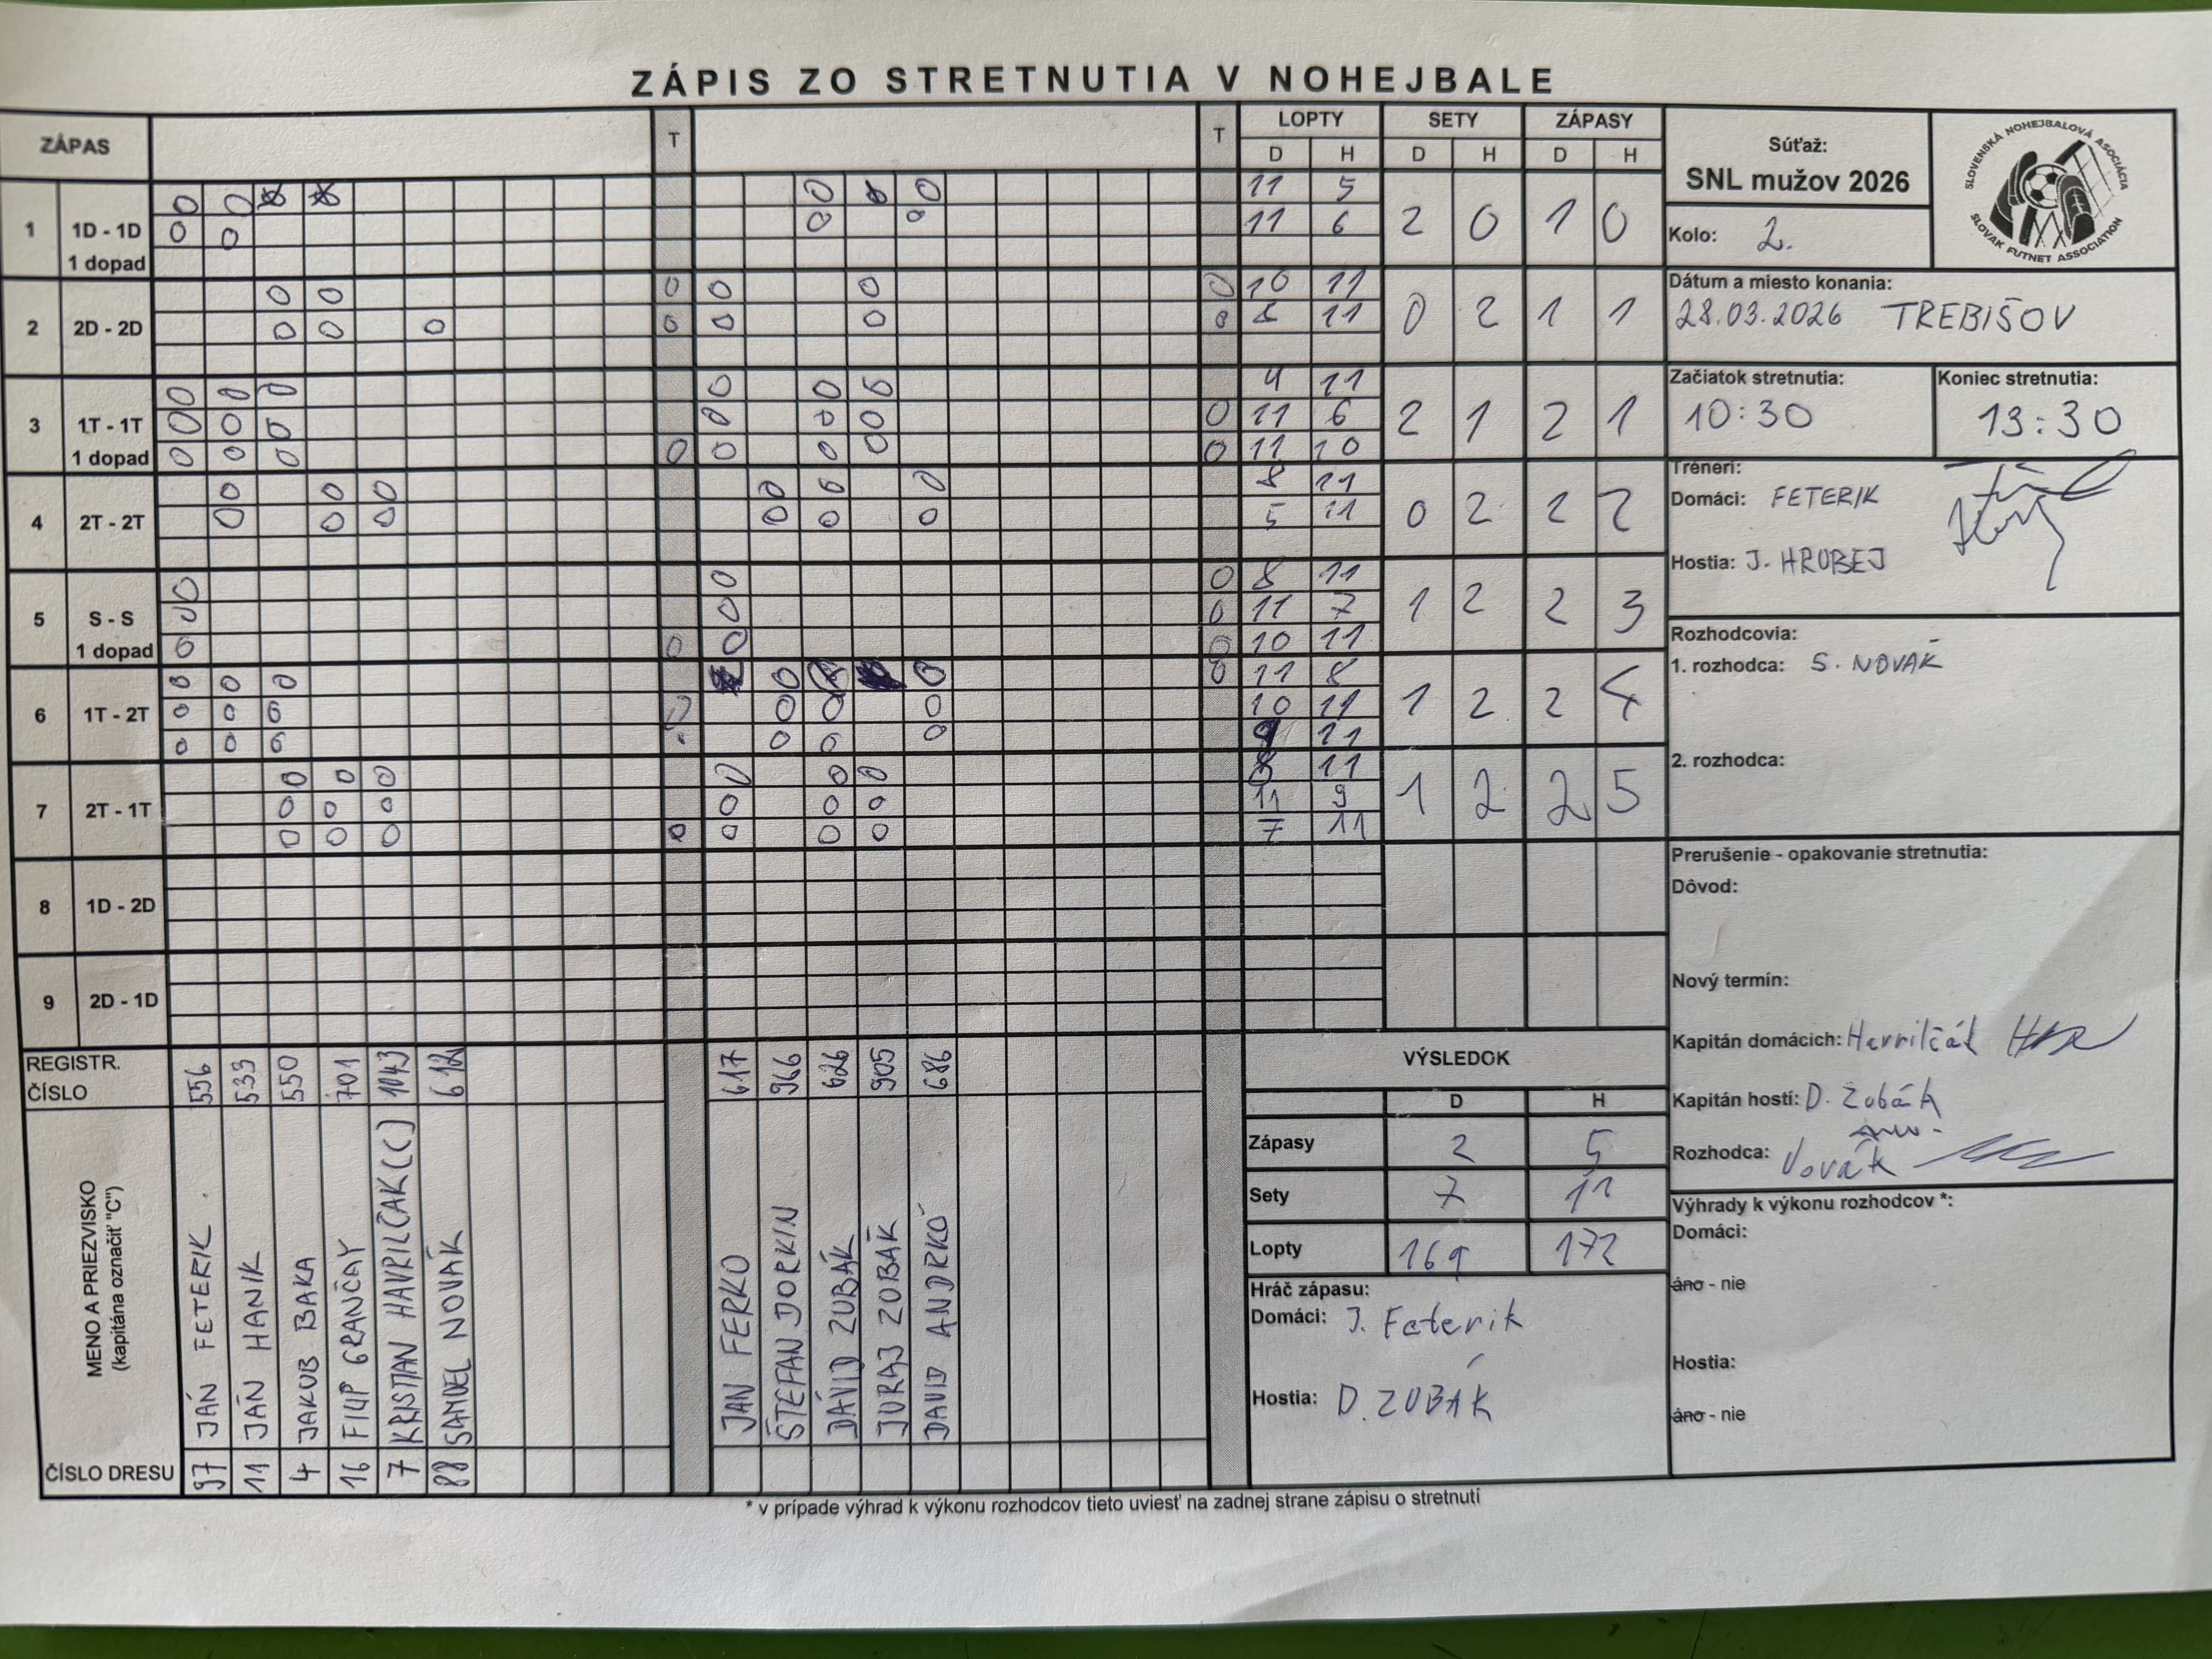 ZÁPIS ZO STRETNUTIA V NOHEJBALE
ZÁPAS T T LOPTY SETY ZÁPASY
D H D H D H
Súťaž:
SNL mužov 2026
SLOVENSKÁ NOHEJBALOVÁ ASOCIÁCIA
SLOVAK FUTNET ASSOCIATION
Kolo: 2.
1 1D - 1D 1 dopad
11 5
11 6
2 0 1 0
2 2D - 2D
10 11
8 11
0 2 1 1
3 1T - 1T 1 dopad
4 11
11 6
11 10
2 1 2 1
4 2T - 2T
8 11
5 11
0 2 2 2
5 S - S 1 dopad
8 11
11 7
10 11
1 2 2 3
6 1T - 2T
11 8
10 11
9 11
1 2 2 4
7 2T - 1T
8 11
11 9
7 11
1 2 2 5
8 1D - 2D
9 2D - 1D
Dátum a miesto konania:
28.03.2026 TREBIŠOV
Začiatok stretnutia: Koniec stretnutia:
10:30 13:30
Tréneri:
Domáci: FETERIK
Hostia: J. HRUBEJ
Rozhodcovia:
1. rozhodca: S. NOVÁK
2. rozhodca:
Prerušenie - opakovanie stretnutia:
Dôvod:
Nový termín:
Kapitán domácich: Havrilčák
Kapitán hostí: D. Zubák
Rozhodca: Novák
Výhrady k výkonu rozhodcov *:
Domáci:
áno - nie
Hostia:
áno - nie
REGISTR. ČÍSLO
556 533 550 701 1043 612
617 966 626 905 686
MENO A PRIEZVISKO
(kapitána označiť "C")
JÁN FETERIK
JÁN HANIK
JAKUB BAKA
FILIP GRANČAY
KRISTIAN HAVRILČAK (C)
SAMUEL NOVÁK
JAN FERKO
ŠTEFAN DORKIN
DÁVID ZUBÁK
JURAJ ZUBÁK
DAVID ANDRKO
ČÍSLO DRESU
97 11 4 16 7 88
VÝSLEDOK
D H
Zápasy 2 5
Sety 7 11
Lopty 169 172
Hráč zápasu:
Domáci: J. Feterik
Hostia: D. ZUBÁK
* v prípade výhrad k výkonu rozhodcov tieto uviesť na zadnej strane zápisu o stretnutí